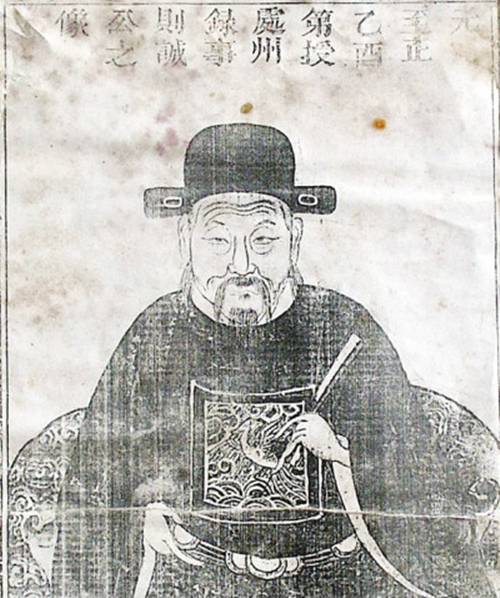 元
至正
乙酉
第授
處州
録事
則誠
公之
像